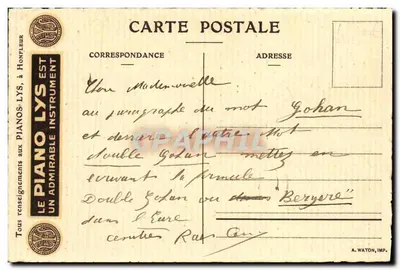 CARTE POSTALE
CORRESPONDANCE
ADRESSE
Tous renseignements aux PIANOS-LYS, à HONFLEUR
LE PIANO LYS EST
UN ADMIRABLE INSTRUMENT
Mademoiselle
au paragraphe du mot Gohan
et derrière l'autre Mot
double Gohan mettez en
écrivant la formule
Double Gohan ou Bergère"
dans l'Eure
A. WATON, IMP.